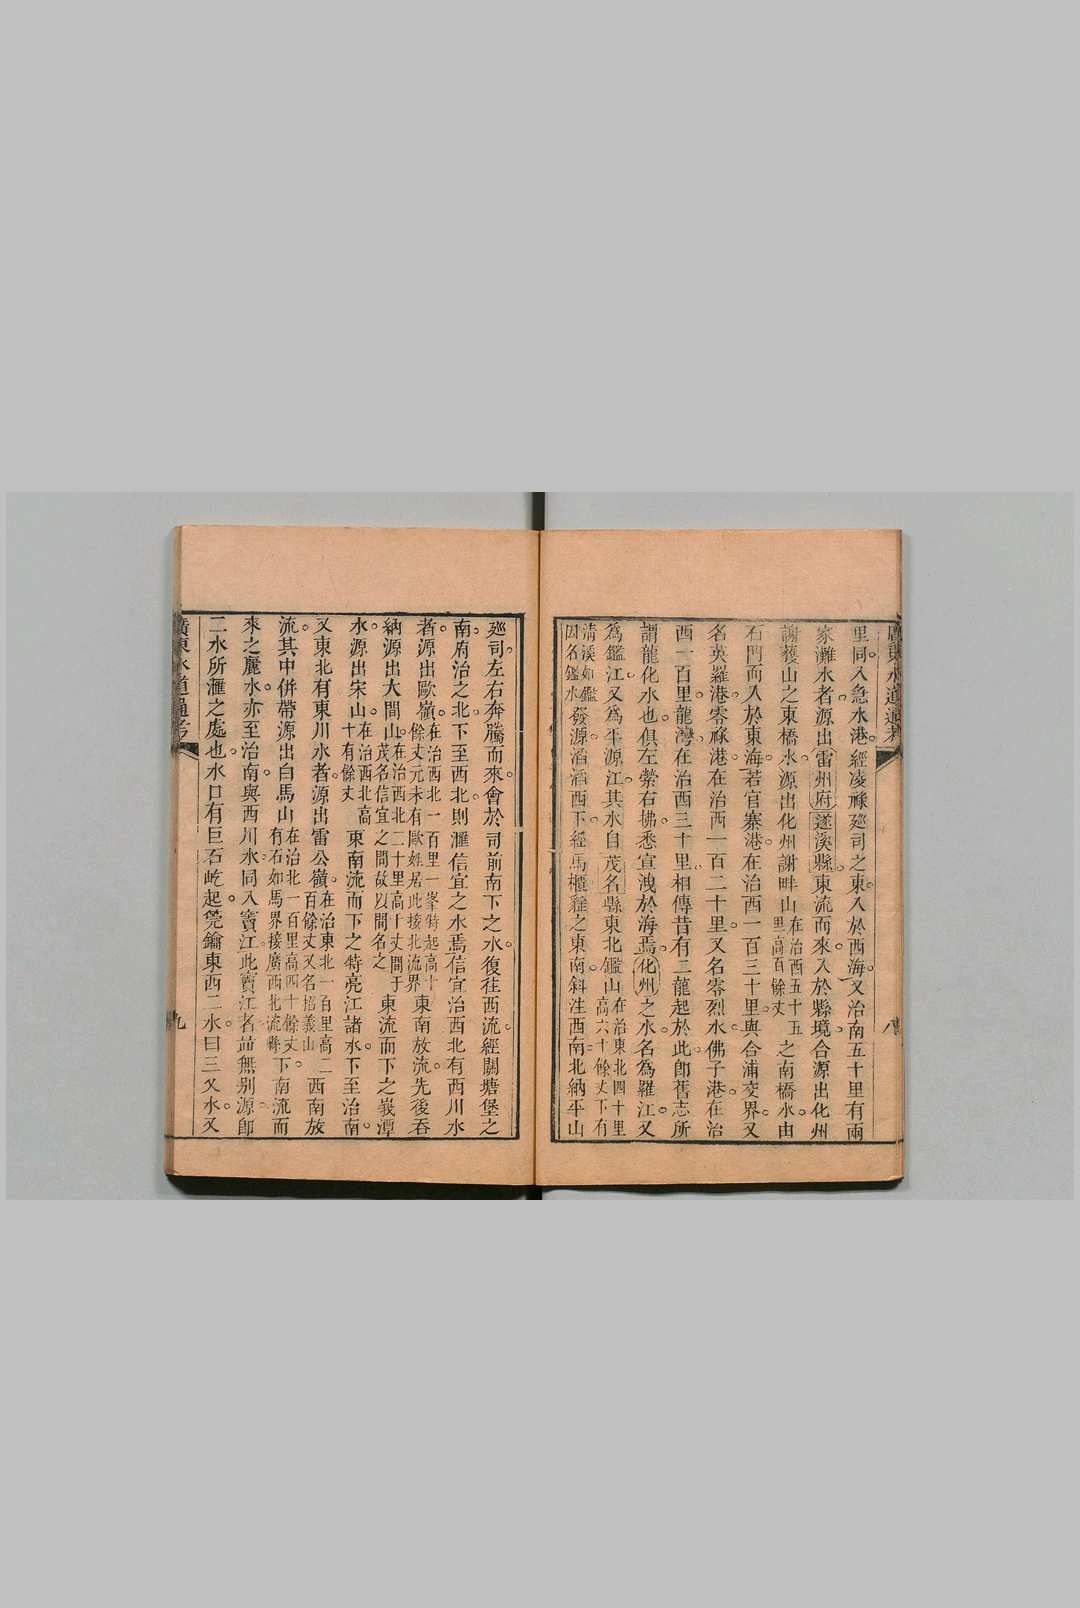 廣東水道通考
里同入急水港經凌祿廵司之東入於西海又治南五十里有兩
家灘水者源出雷州府遂溪縣東流而來入於縣境合源出化州
謝獲山之東橋水源出化州謝畔山在治西五十五里高百餘丈之南橋水由
石門而入於東海若官寨港在治西一百三十里與合浦交界又
名英羅港零祿港在治西一百二十里又名零烈水佛子港在治
西一百里龍灣在治西三十里相傳昔有二龍起於此郎舊志所
謂龍化水也俱左縈右拂悉宣洩於海焉化州之水名爲羅江又
爲鑑江又爲平源江其水自茂名縣東北鑑山在治東北四十里高六十餘丈下有
清溪如鑑因名鑑水發源滔滔西下經馬櫃雞之東南斜注西南北納平山
廵司左右奔騰而來會於司前南下之水復往西流經關塘堡之
南府治之北下至西北則滙信宜之水焉信宜治西北有西川水
者源出歐嶺在治西北一百里一峯特起高十餘丈元末有歐姓居此接北流界東南放流先後吞
納源出大間山在治西北二十里高十丈間于茂名信宜之間故以間名之東流而下之峩潭
水源出宋山在治西北高十有餘丈東南流而下之特亮江諸水下至治南
又東北有東川水者源出雷公嶺在治東北一百里高二百餘丈又名招義山西南放
流其中併帶源出白馬山在治北一百里高四十餘丈有石如馬界接廣西北流縣下南流而
來之麗水亦至治南與西川水同入竇江此竇江名茁無别源郎
二水所滙之處也水口有巨石屹起筦鑰東西二水曰三叉水又
廣東水道通考
九